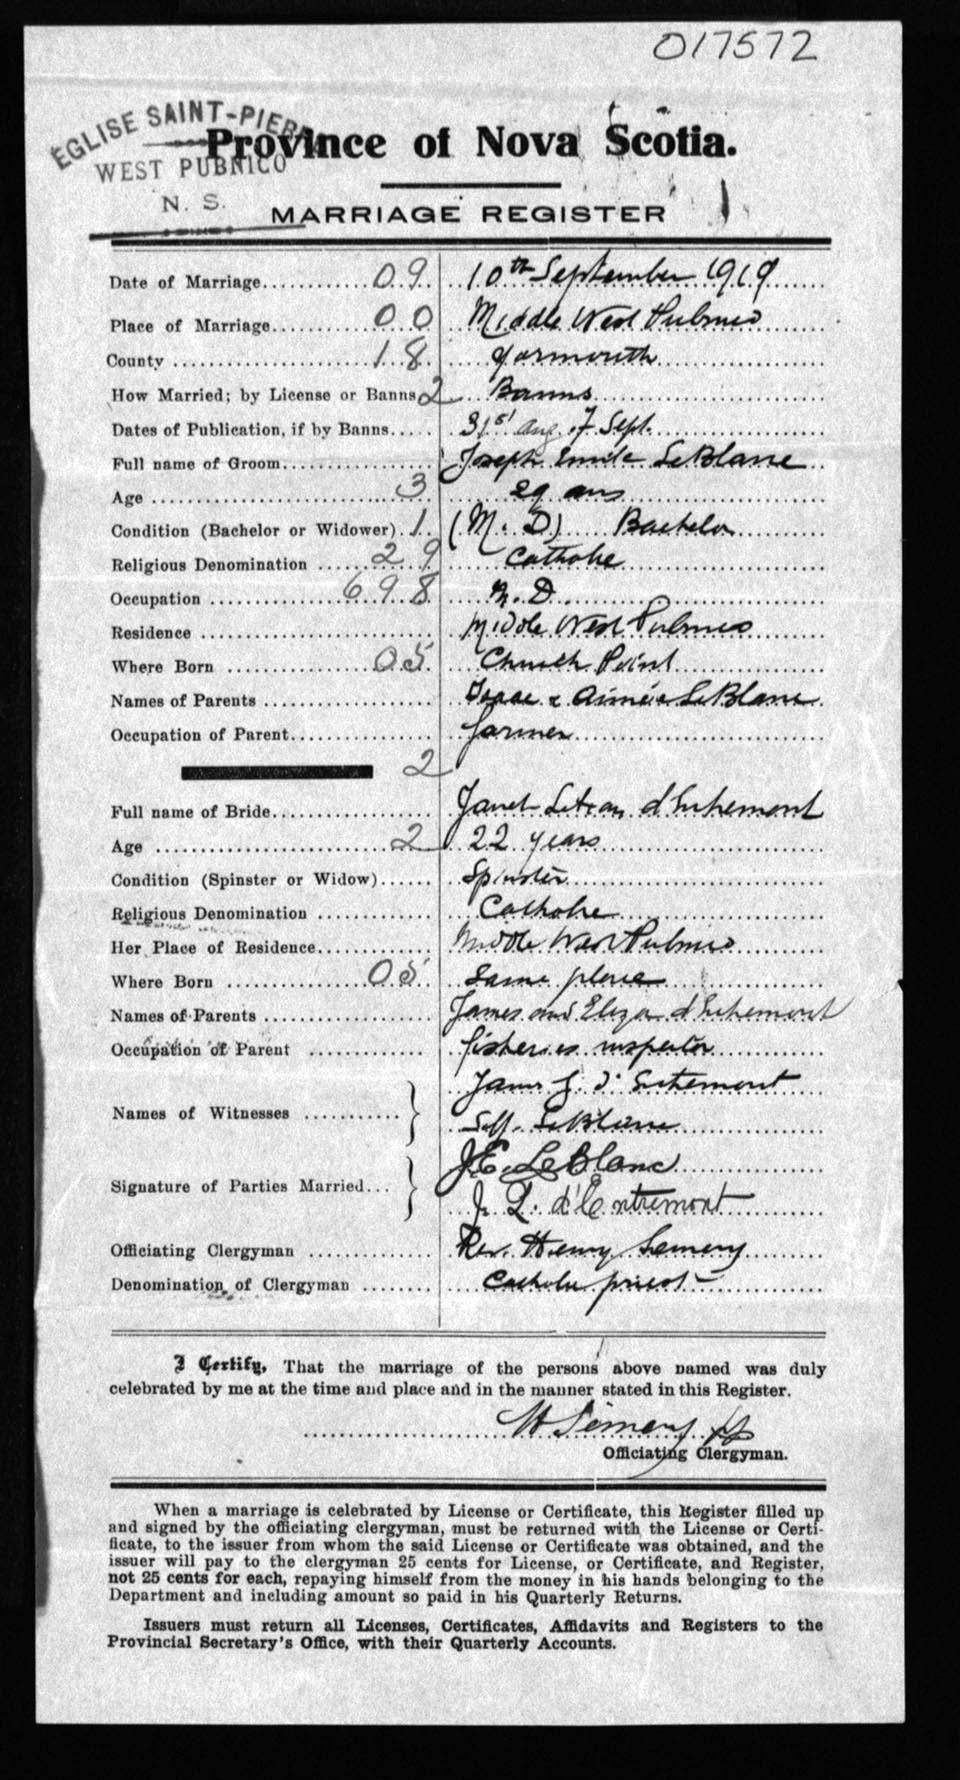 017572
EGLISE SAINT-PIERRE
WEST PUBNICO
N. S.
Province of Nova Scotia.
MARRIAGE REGISTER
Date of Marriage 09 10th September 1919
Place of Marriage 00 Middle West Pubnico
County 18 Yarmouth
How Married; by License or Banns 2 Banns
Dates of Publication, if by Banns 31st Aug. 7 Sept.
Full name of Groom Joseph Emile LeBlanc
Age 3 29 ans
Condition (Bachelor or Widower) 1 (M. D) Bachelor
Religious Denomination 29 Catholic
Occupation 698 M. D.
Residence Middle West Pubnico
Where Born 05 Church Point
Names of Parents Isaac & Aimée LeBlanc
Occupation of Parent farmer
2
Full name of Bride Janet d'Entremont
Age 2 22 years
Condition (Spinster or Widow) Spinster
Religious Denomination Catholic
Her Place of Residence Middle West Pubnico
Where Born 05 Same place
Names of Parents James and Eliza d'Entremont
Occupation of Parent fisheries inspector
James d'Entremont
Names of Witnesses LeBlanc
J.E. LeBlanc
Signature of Parties Married J. L. d'Entremont
Officiating Clergyman Rev. Henry
Denomination of Clergyman Catholic priest
I Certify, That the marriage of the persons above named was duly
celebrated by me at the time and place and in the manner stated in this Register.
Officiating Clergyman.
When a marriage is celebrated by License or Certificate, this Register filled up
and signed by the officiating clergyman, must be returned with the License or Certi-
ficate, to the issuer from whom the said License or Certificate was obtained, and the
issuer will pay to the clergyman 25 cents for License, or Certificate, and Register,
not 25 cents for each, repaying himself from the money in his hands belonging to the
Department and including amount so paid in his Quarterly Returns.
Issuers must return all Licenses, Certificates, Affidavits and Registers to the
Provincial Secretary's Office, with their Quarterly Accounts.